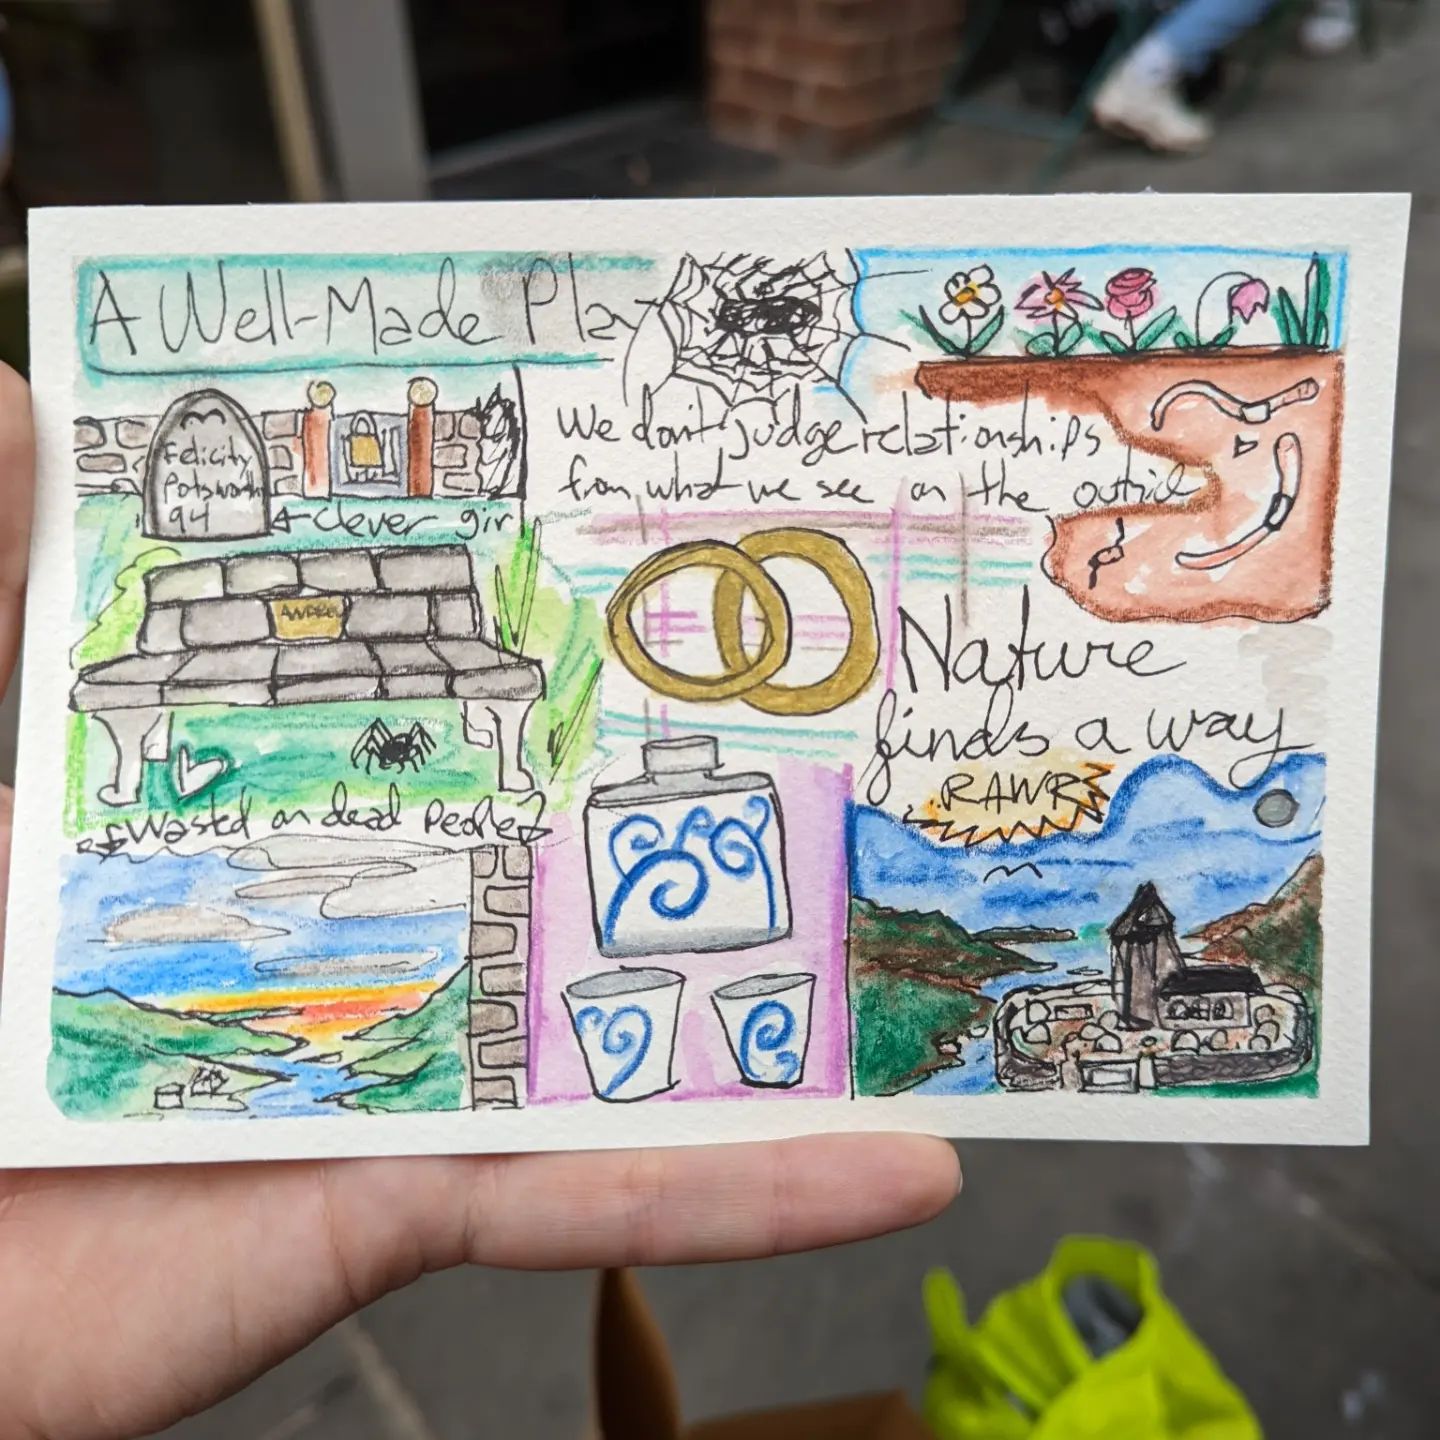 A Well-Made Play
Felicity
Potsworth
94
clever girl
We don't judge relationships
from what we see on the outside
ANDREW
Wasted on dead people?
Nature
finds a way
RAWR